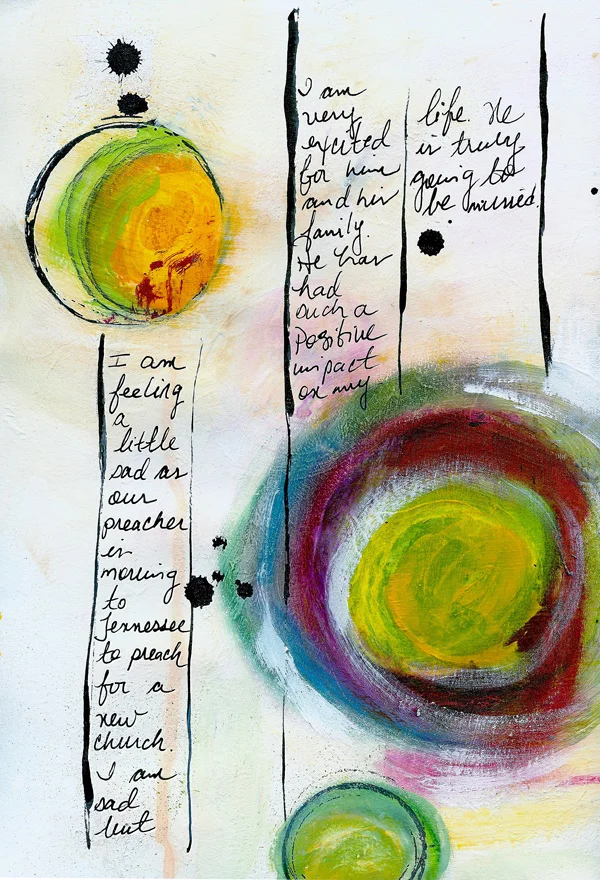 I am
feeling
a
little
sad as
our
preacher
is
moving
to
Tennessee
to preach
for a
new
church.
I am
sad
but
I am
very
excited
for him
and his
family.
He has
had
such a
Positive
impact
on my
life. He
is truly
going to
be missed.